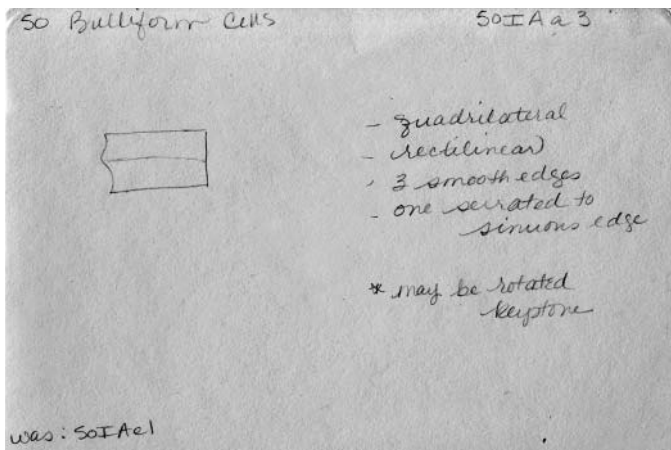 50 Bulliform Cells 50IAa3
- quadrilateral
- rectilinear
- 3 smooth edges
- one serrated to
sinuous edge
* may be rotated
keystone
was: 50IAe1